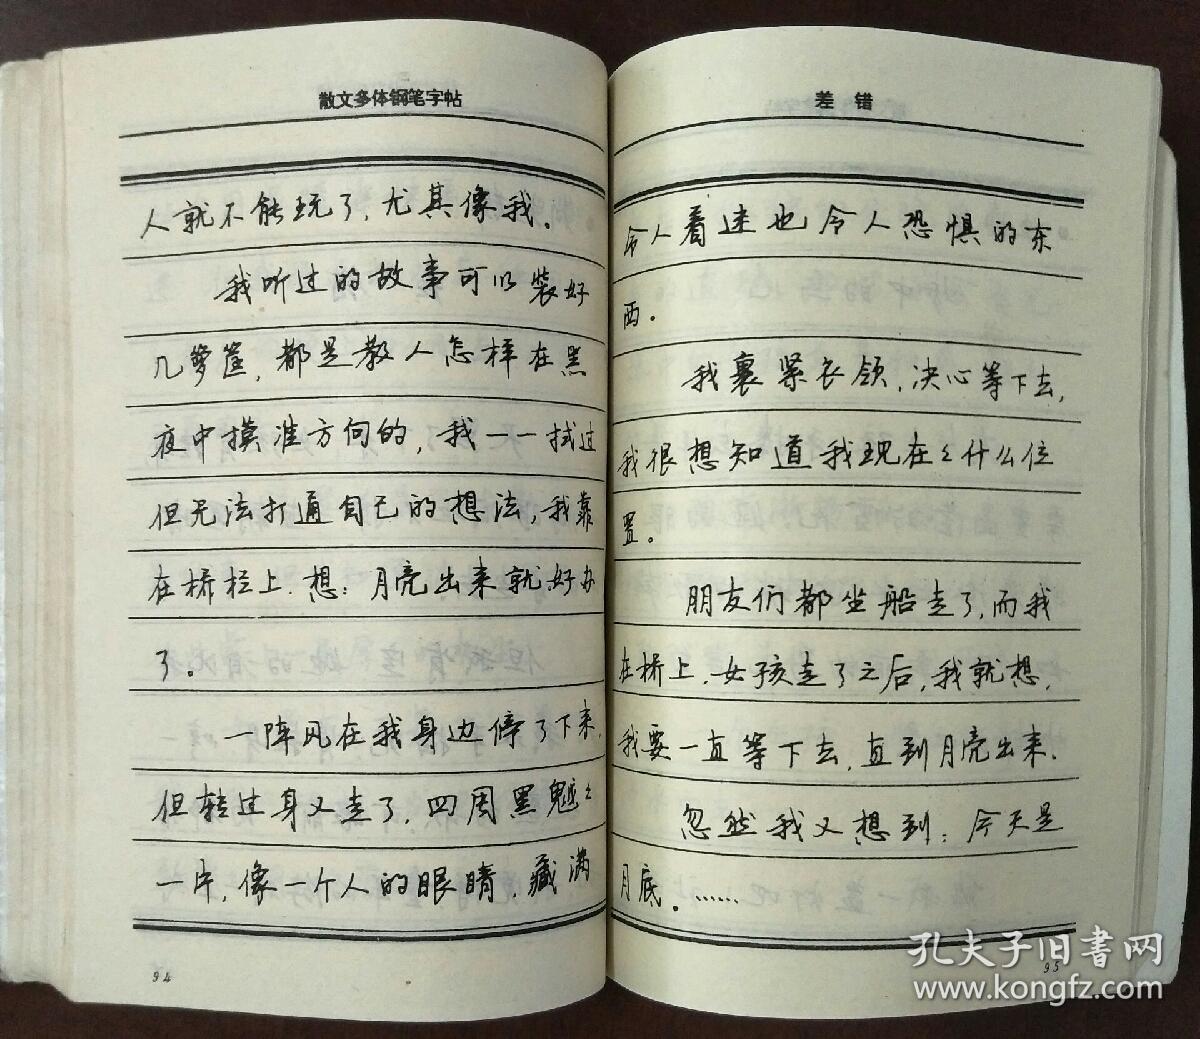 散文多体钢笔字帖
人就不能玩了，尤其像我．
我听过的故事可以装好
几箩筐，都是教人怎样在黑
夜中摸准方向的，我一一拭过
但无法打通自己的想法，我靠
在桥栏上．想：月亮出来就好办
了。
一阵风在我身边停了下来，
但转过身又走了，四周黑魆々
一片，像一个人的眼睛，藏满
94
差错
令人着迷也令人恐惧的东
西。
我裹紧衣领，决心等下去，
我很想知道我现在々什么位
置。
朋友们都坐船走了，而我
在桥上，女孩走了之后，我就想，
我要一直等下去，直到月亮出来．
忽然我又想到：今天是
月底。……
95
孔夫子旧书网
www.kongfz.com